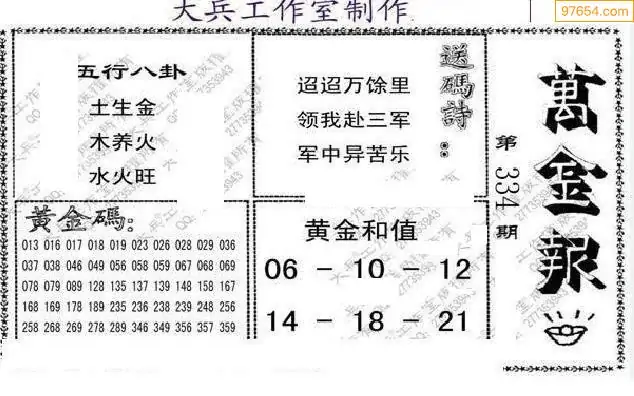 大兵工作室制作
97654.com
萬金報
第334期
送碼詩：
迢迢万馀里
领我赴三军
军中异苦乐
五行八卦
土生金
木养火
水火旺
黄金碼：
013 016 017 018 019 023 026 028 029 036
037 038 046 049 056 058 059 067 068 069
078 079 089 128 135 137 139 148 158 167
168 169 178 189 235 236 238 239 248 256
258 268 269 278 289 346 349 356 357 359
黄金和值
06 － 10 － 12
14 － 18 － 21